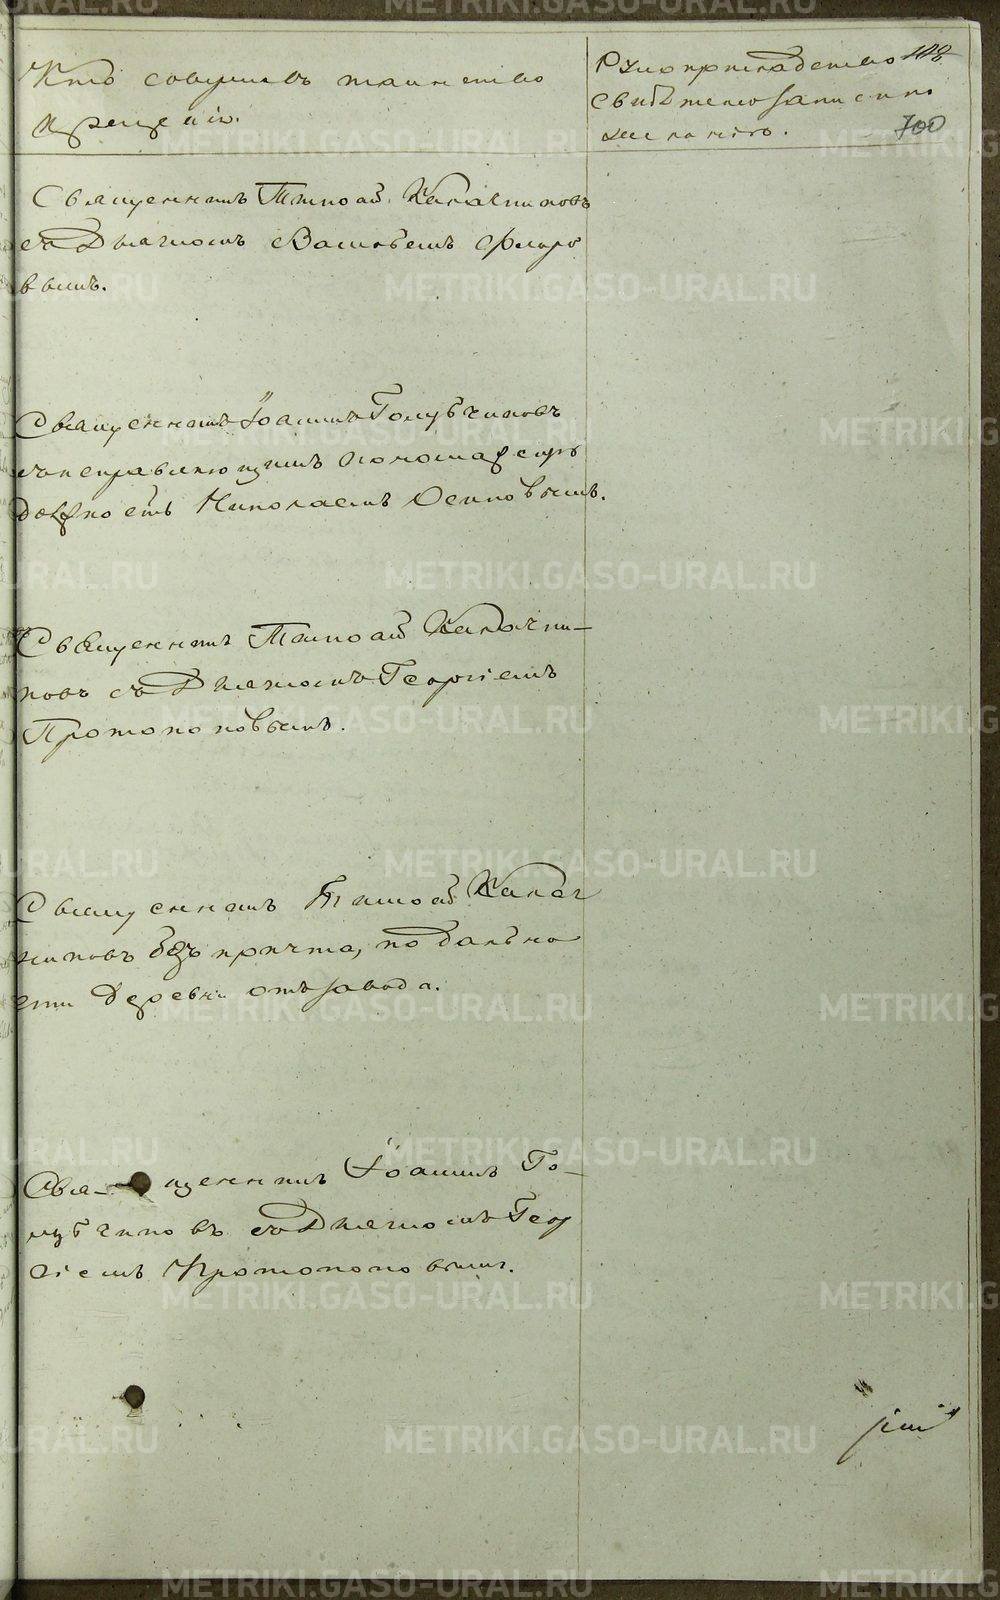 Кто совершалъ таинство
крещенія.
Рукоприкладство
свидѣтелей записи по
желанію.
108
700
Священникъ Тимоѳей Калашниковъ
съ Діакономъ Василіемъ Флоро
вымъ.
Священникъ Іоаннъ Голубчиковъ
съ исправляющимъ пономарскую
должность Николаемъ Осиповымъ.
Священникъ Тимоѳей Калашни-
ковъ съ Діакономъ Георгіемъ
Протопоповымъ.
Священникъ Тимоѳей Калаш
никовъ безъ причта, по дально
сти деревни отъ завода.
Свя- щенникъ Іоаннъ Го-
лубчиковъ съ Діакономъ Геор
гіемъ Протопоповымъ.
METRIKI.GASO-URAL.RU